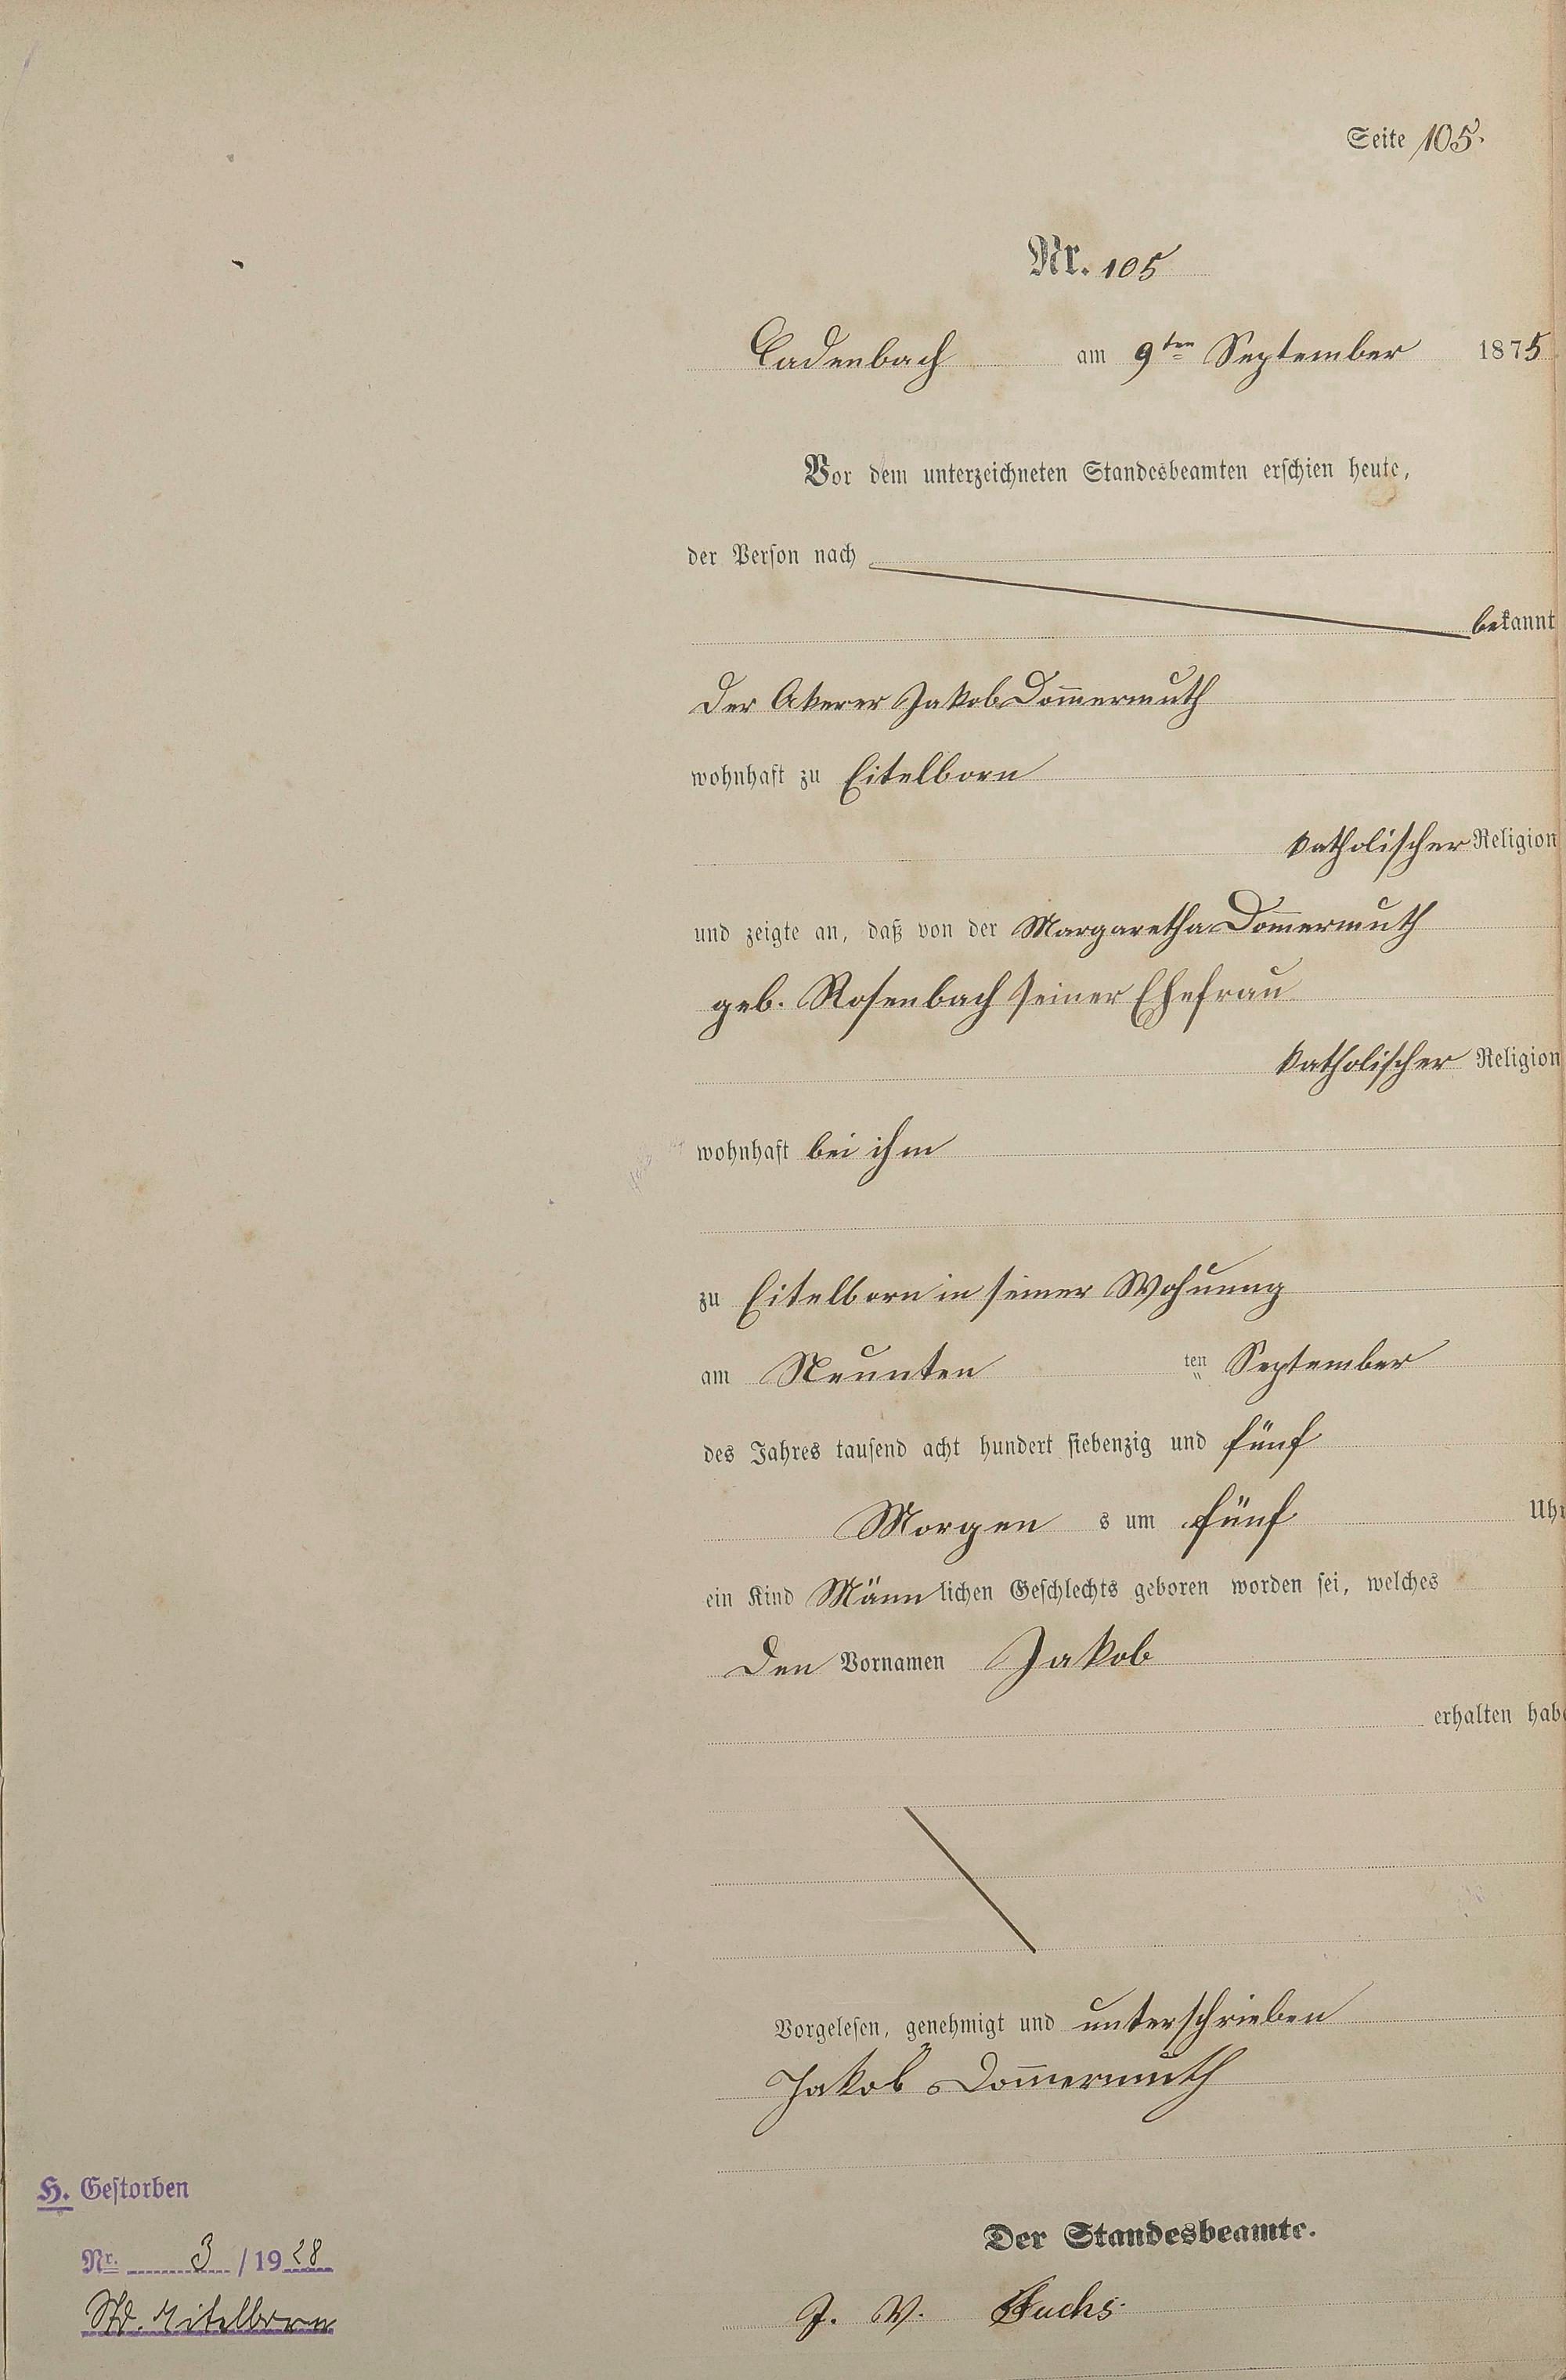 Seite 105.
Nr. 105
Cadenbach am 9ten September 1875
Vor dem unterzeichneten Standesbeamten erschien heute,
der Person nach
bekannt
der Akerer Jakob Dom̅ermuth
wohnhaft zu Eitelborn
katholischer Religion
und zeigte an, daß von der Margaretha Dom̅ermuth
geb. Rosenbach seiner Ehefrau
katholischer Religion
wohnhaft bei ihm
zu Eitelborn in seiner Wohnung
am Neunten ten September
des Jahres tausend acht hundert siebenzig und fünf
Morgen s um fünf Uhr
ein Kind Männlichen Geschlechts geboren worden sei, welches
den Vornamen Jakob
erhalten habe
Vorgelesen, genehmigt und unterschrieben
Jakob Dom̅ermuth
Der Standesbeamte.
J. V. Fuchs
H. Gestorben
Nr. 3 /1928
Std. Eitelborn